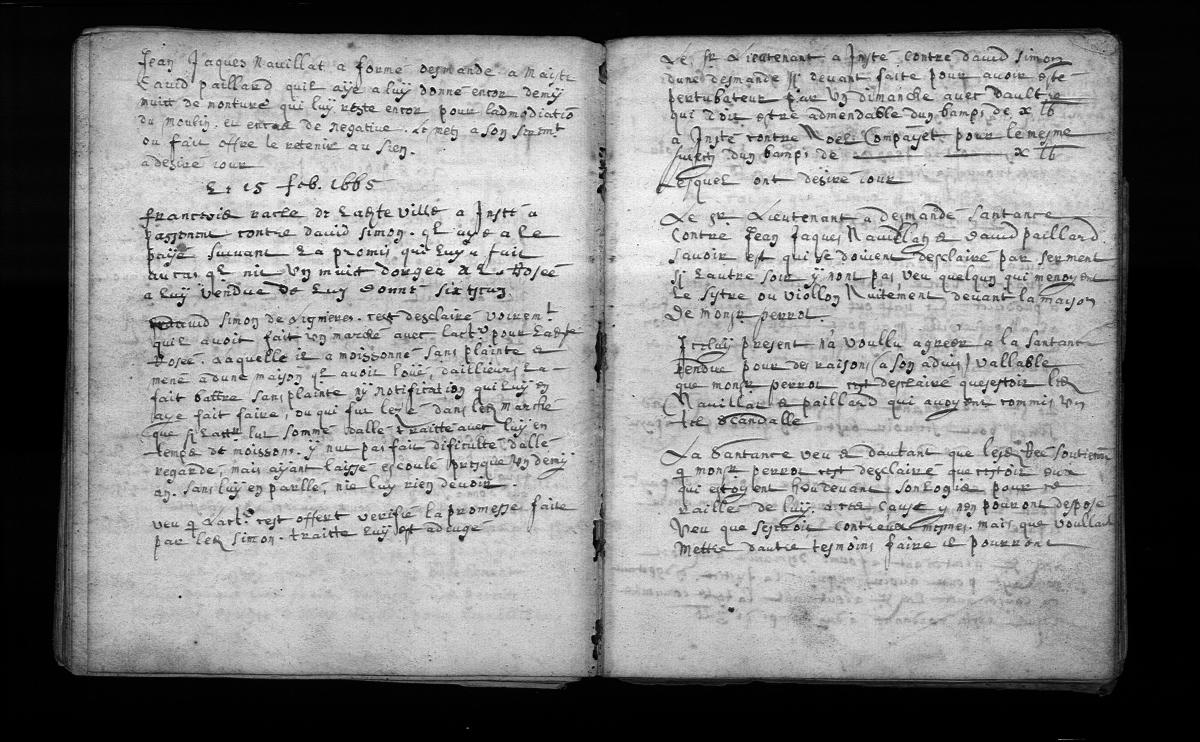 Jean Jaques Navillat a formé desmande a Maistre
David paillard quil aye a luy donné encor demy
muitt de monture qui luy reste encor pour ladmodiatio
du moulin. et encas de negative. Le mets a son sermt
ou fait offre le retenir au sien.
a desiré iour
Le 15 feb. 1665
francoise racle de Ladte ville a Insté a
passement contre david simon. qe aye a le
payé suivant La promis qui Luy a fait
au cas qe nit un muitt dorgea
a Luy vendue de Luy donné six escus.
david simon de digmeres. cest desclaire voiremt
quil avoit fait un marché avec Lactr pour Ladte
Rosee. Laquelle il a moissonné sans plainte &
mené a dune maison qe avoit Loué, dailliieurs La
fait battre sans plainte ny Notification qui Luy en
aye fait faire, ou qui fut Lezé dans Ledt marché
que si Lactr lut sommé dallé traitté avec luy en
temps de moissons. y nut pas fait dificulté dallé
regardé, mais ayant laissé escoulé presque un demy
an. sans luy en parllé, nie luy rien devoir.
veu q Lactr. cest offert verifié la promesse faite
par Ledt Simon. traitte Luy est adiugé
Le sr Lieutenant a Insté contre david simon
dune desmande cy devant faite pour avoir esté
pertubateur par un dimanche avec daultre
qui doit estre admendable dun bamps de x lb
a Insté contre Noel Compayet pour le mesme
suject dun bamps de x lb
Lesquel ont desiré iour
Le sr Lieutenant a desmandé santance
contre Jean Jaques Navillat & david paillard.
savoir est qui se doivent desclairé par serment
si Lautre soir y nont pas veu quelqun qui menoyent
Le sistre ou viollon Nuitement devant la maison
de monsr perrot.
Iceluy present na voullu agreér a la santance
Rendue pour des raisons (a son advis) vallable
que monsr perrot cest desclairé questoit lesd
Navillat & paillard qui avoyent commis un
tel scandalle
La santance veu & dautant que lesd
q monsr perrot cest desclairé que cestoit eux
qui estoyent devant son Logis pour ce
raillé de luy. a cete cause y non pouront desposé
veu que seseroit contreux mesmes. mais que voullant
mettre dautre tesmoins faire le pourront